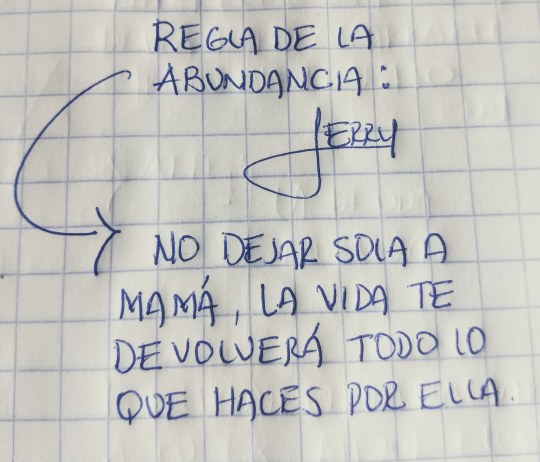 REGLA DE LA
ABUNDANCIA:
JERRY
NO DEJAR SOLA A
MAMÁ, LA VIDA TE
DEVOLVERÁ TODO LO
QUE HACES POR ELLA.